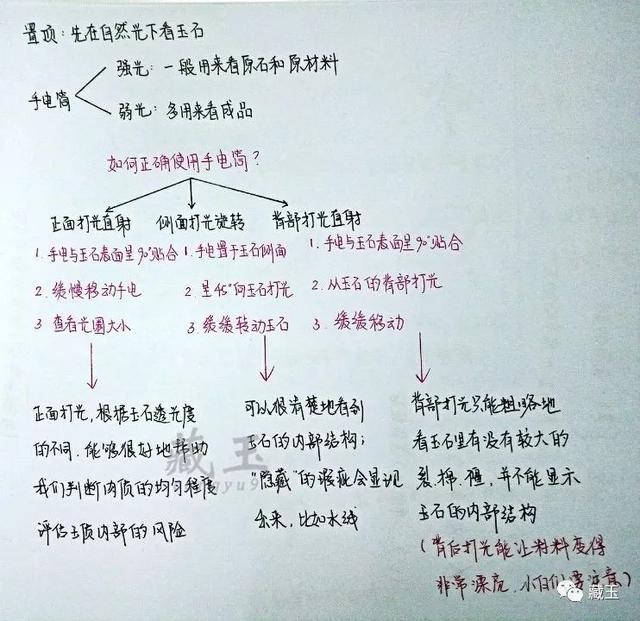 置顶：先在自然光下看玉石
手电筒
强光：一般用来看原石和原材料
弱光：多用来看成品
如何正确使用手电筒？
正面打光直射
侧面打光旋转
背部打光直射
1.手电与玉石表面呈90°贴合
2.缓慢移动手电
3 查看光圈大小
1.手电置于玉石侧面
2.呈45°向玉石打光
3.缓缓转动玉石
1.手电与玉石表面呈90°贴合
2.从玉石的背部打光
3.缓缓移动
正面打光，根据玉石透光度
的不同，能够很好地帮助
我们判断内质的均匀程度
评估玉质内部的风险
可以很清楚地看到
玉石的内部结构；
"隐藏"的瑕疵会显现
出来，比如水线
背部打光只能粗略地
看玉石里有没有较大的
裂、棉、僵，并不能显示
玉石的内部结构
（背后打光能让料料变得
非常漂亮，小白们要注意）
藏玉
藏玉